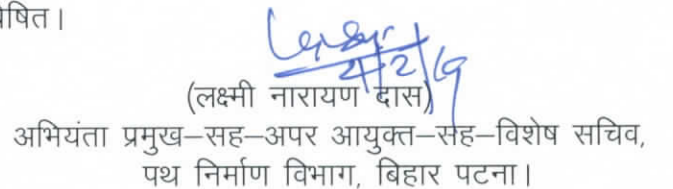 षित।
4/2/19
(लक्ष्मी नारायण दास)
अभियंता प्रमुख–सह–अपर आयुक्त–सह–विशेष सचिव,
पथ निर्माण विभाग, बिहार पटना।